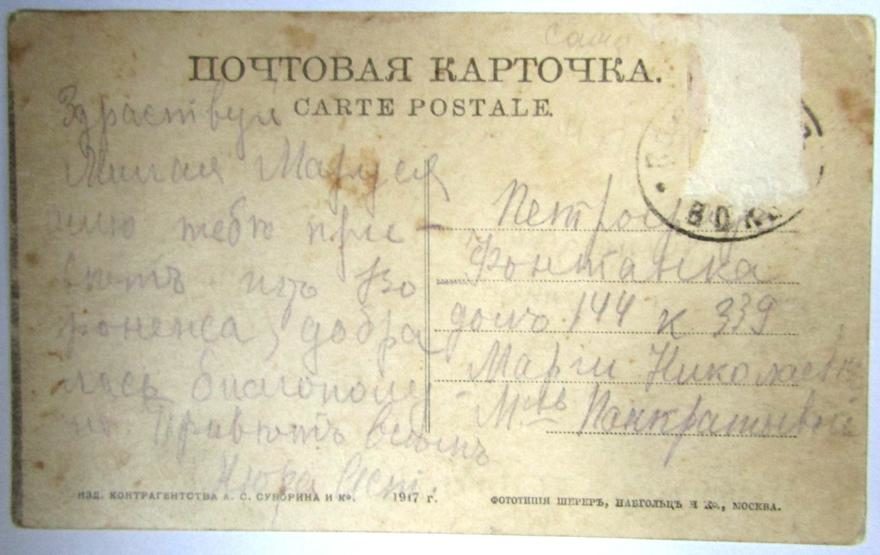 ПОЧТОВАЯ КАРТОЧКА.
CARTE POSTALE.
Здраствуй
Милая Маруся
шлю тебѣ при-
вѣтъ изъ Во
ронежа, добра
лась благополу
но Привѣтъ всѣмъ
Нюра
Фонтанка
домъ 144 к 339
Марiи Николаевн
Панкратьевой
ВОКЗ
ИЗД. КОНТРАГЕНТСТВА А. С. СУВОРИНА И Ко. 1917 г.
ФОТОТИПІЯ ШЕРЕРЪ, НАБГОЛЬЦЪ И Ко., МОСКВА.